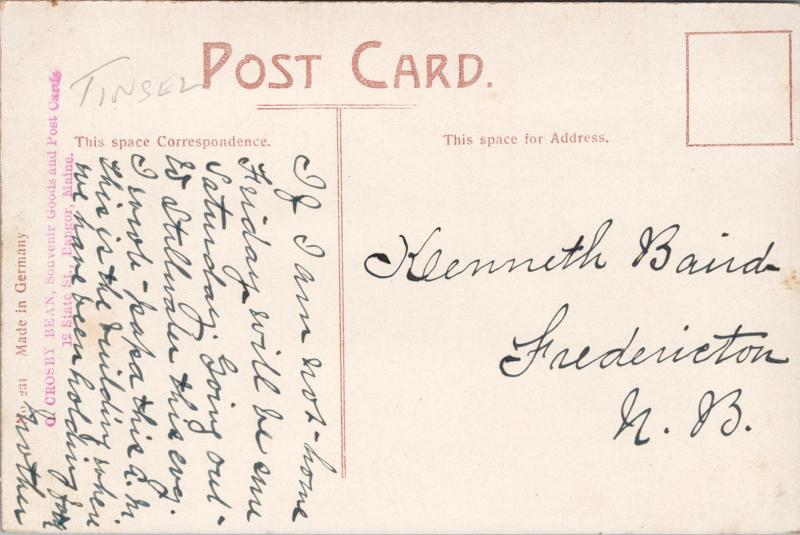 TINSEL
POST CARD.
This space Correspondence.
This space for Address.
If I am not home
Friday will be sure
Saturday Going out
to Stillwater this eve.
I wrote papa this A.M.
this is the building where
we have been holding
Mother
Kenneth Baird
Fredericton
N. B.
G. CROSBY BEAN, Souvenir Goods and Post Cards
12 State St., Bangor, Maine.
No. 231 Made in Germany